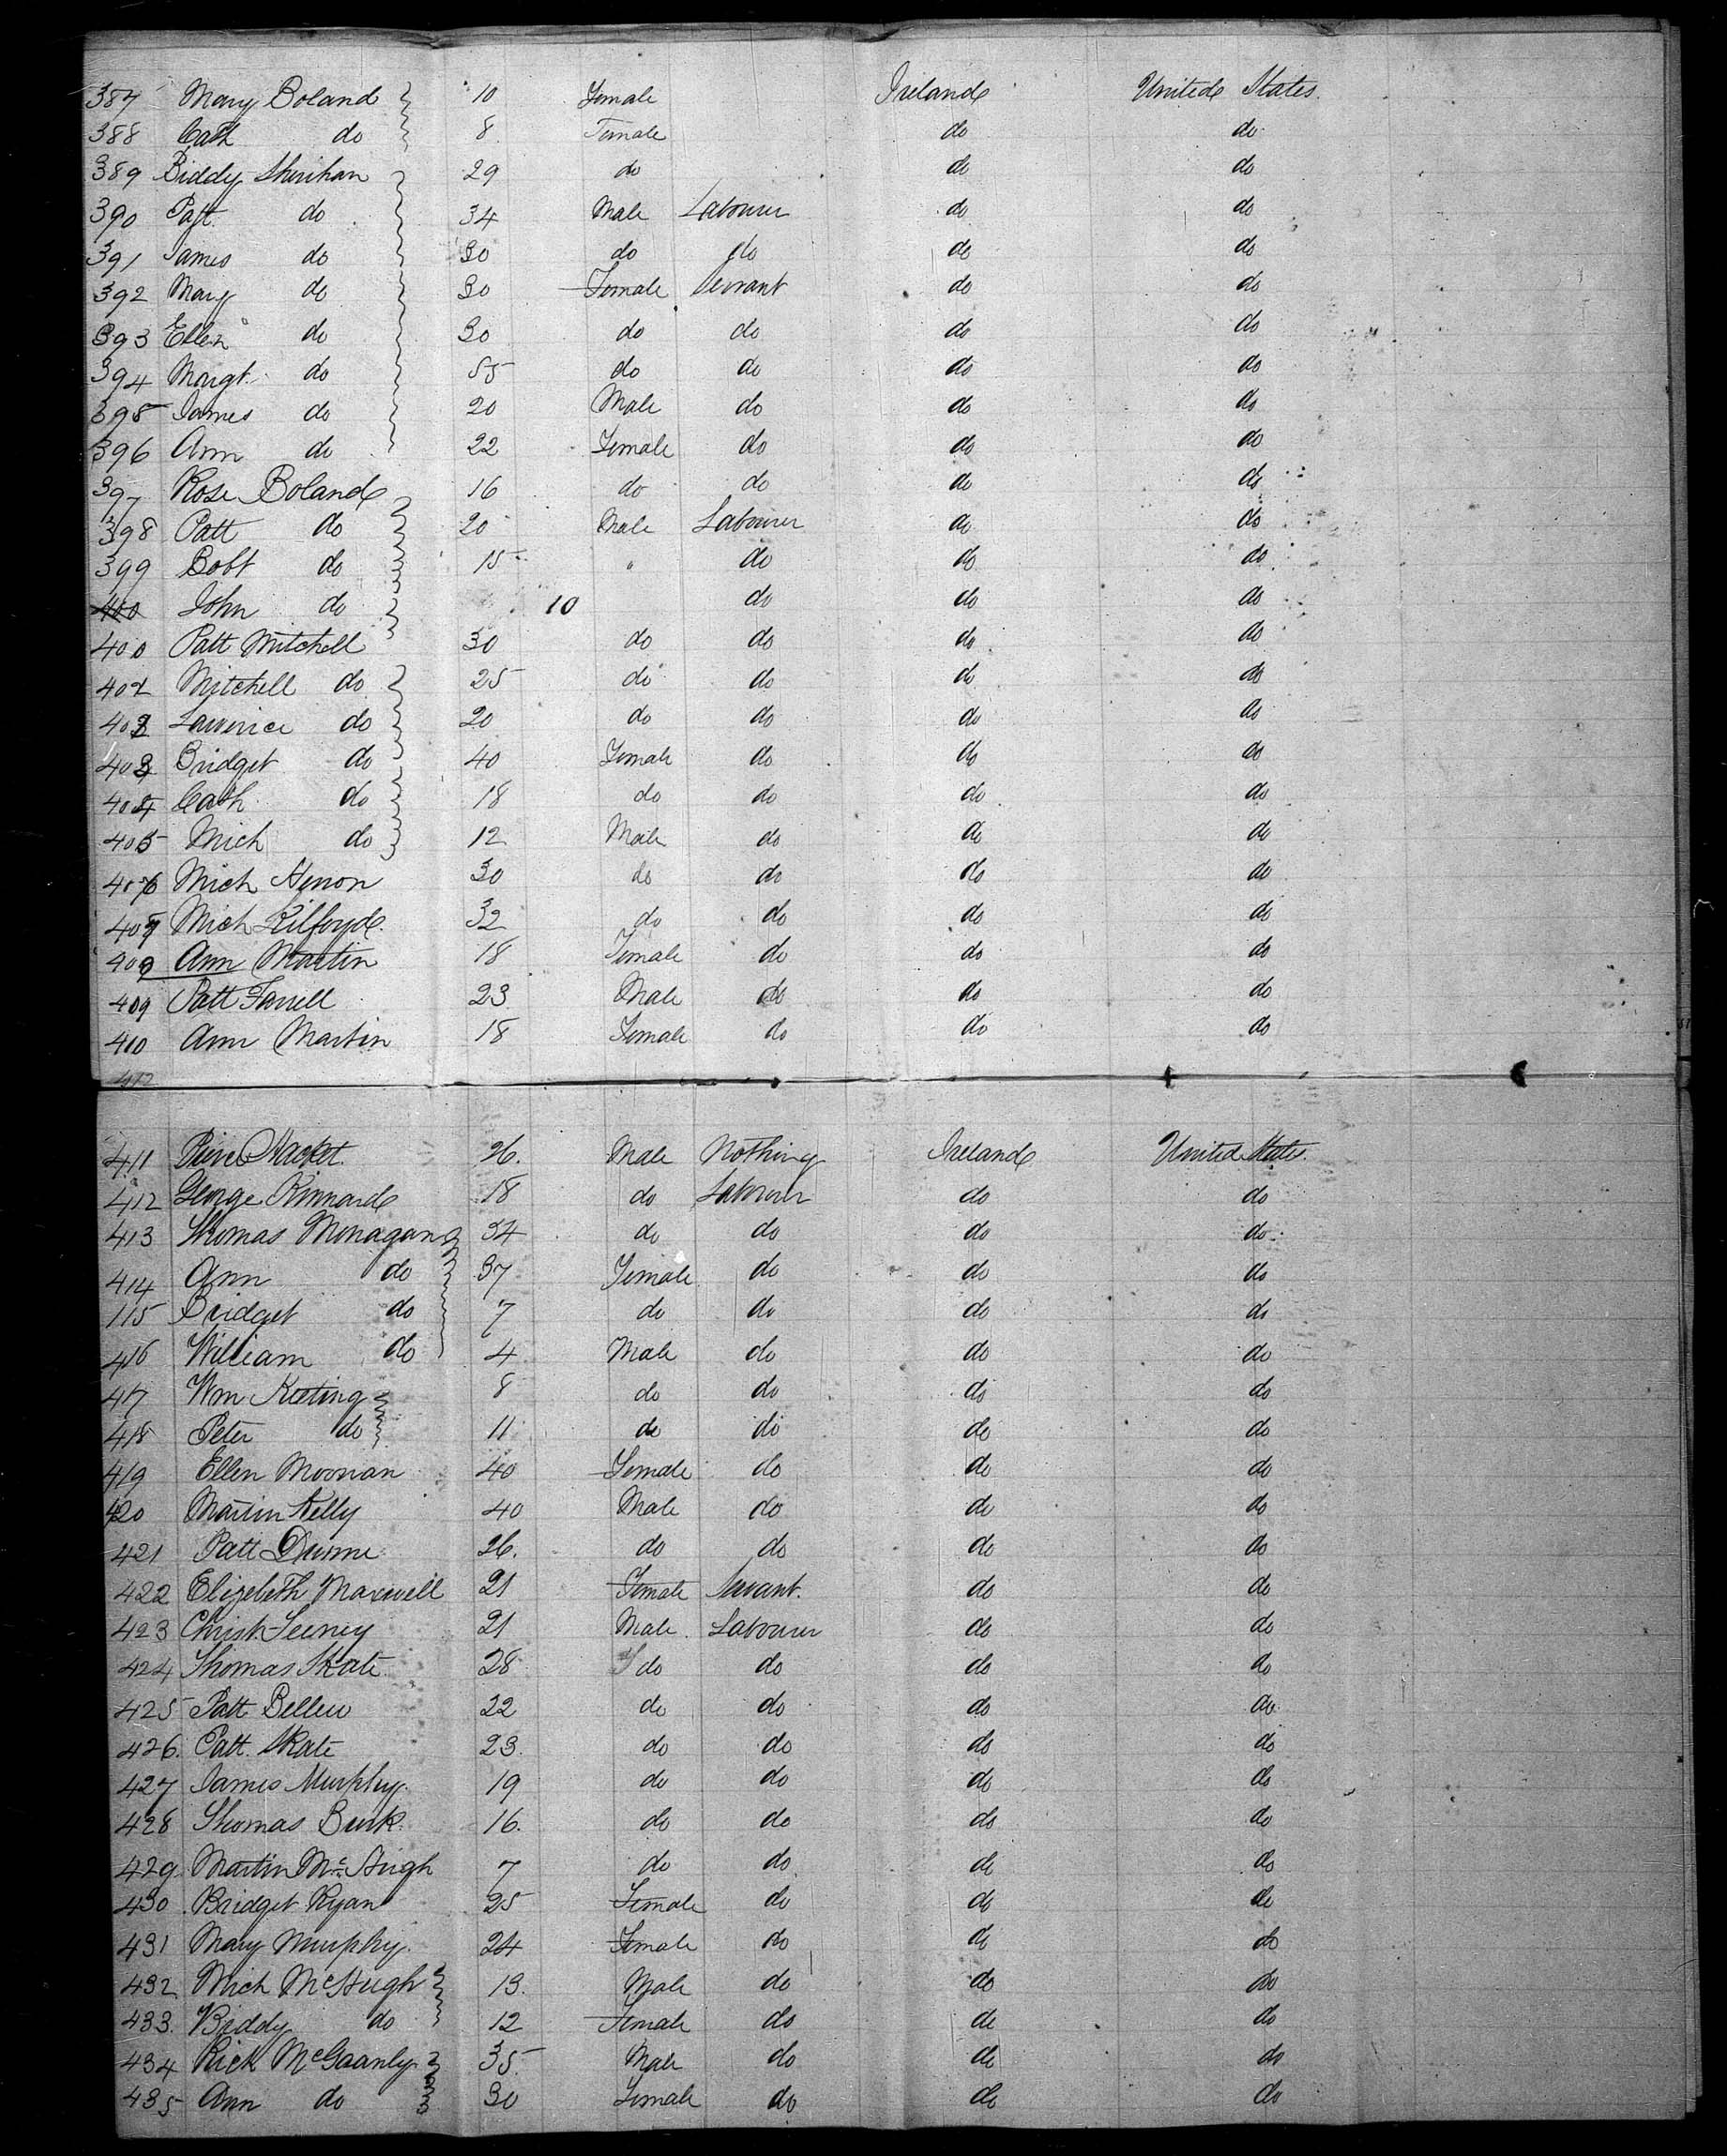 387 Mary Boland 10 Female Ireland United States
388 Cath do 8 Female do do
389 Biddy Sherihan 29 do do do
390 Patt do 34 Male Labourer do do
391 James do 30 do do do do
392 Mary do 30 Female Servant do do
393 Ellen do 30 do do do do
394 Margt. do 55 do do do do
395 James do 20 Male do do do
396 Ann do 22 Female do do do
397 Rose Boland 16 do do do do
398 Patt do 20 Male Labourer do do
399 Bobt do 15 " do do do
400 John do 10 do do do
400 Patt Mitchell 30 do do do do
401 Mitchell do 25 do do do do
402 Lawrence do 20 do do do do
403 Bridget do 40 Female do do do
404 Cath do 18 do do do do
405 Mich do 12 Male do do do
406 Mich 30 do do do do
407 Mich Kilfoyde 32 do do do do
408 Ann Martin 18 Female do do do
409 Patt Farrell 23 Male do do do
410 Ann Martin 18 Female do do do
412
411 Hacket 26. Male Nothing Ireland United States
412 George Kinnard 18 do Labourer do do
413 Thomas Monagan 34 do do do do
414 Ann do 37 Female do do do
115 Bridget do 7 do do do do
416 William do 4 Male do do do
417 Wm Keeting 8 do do do do
418 Peter do 11 do do do do
419 Ellen Moonan 40 Female do do do
420 Martin Kelly 40 Male do do do
421 Patt Dunne 26. do do do do
422 Elizebeth Maxwell 21 Female Servant. do do
423 Christ. Feeney 21 Male Labourer do do
424 Thomas Skate 28 do do do do
425 Patt Bellew 22 do do do do
426. Patt. Skate 23. do do do do
427 James Murphy. 19 do do do do
428 Thomas Burk. 16. do do do do
429. Martin McHugh 7 do do do do
430 Bridget Ryan 25 Female do do do
431 Mary Murphy. 24 Female do do do
432 Mich McHugh 13. Male do do do
433. Biddy do 12 Female do do do
434 Rick McGaanly 35 Male do do do
435 Ann do 30 Female do do do